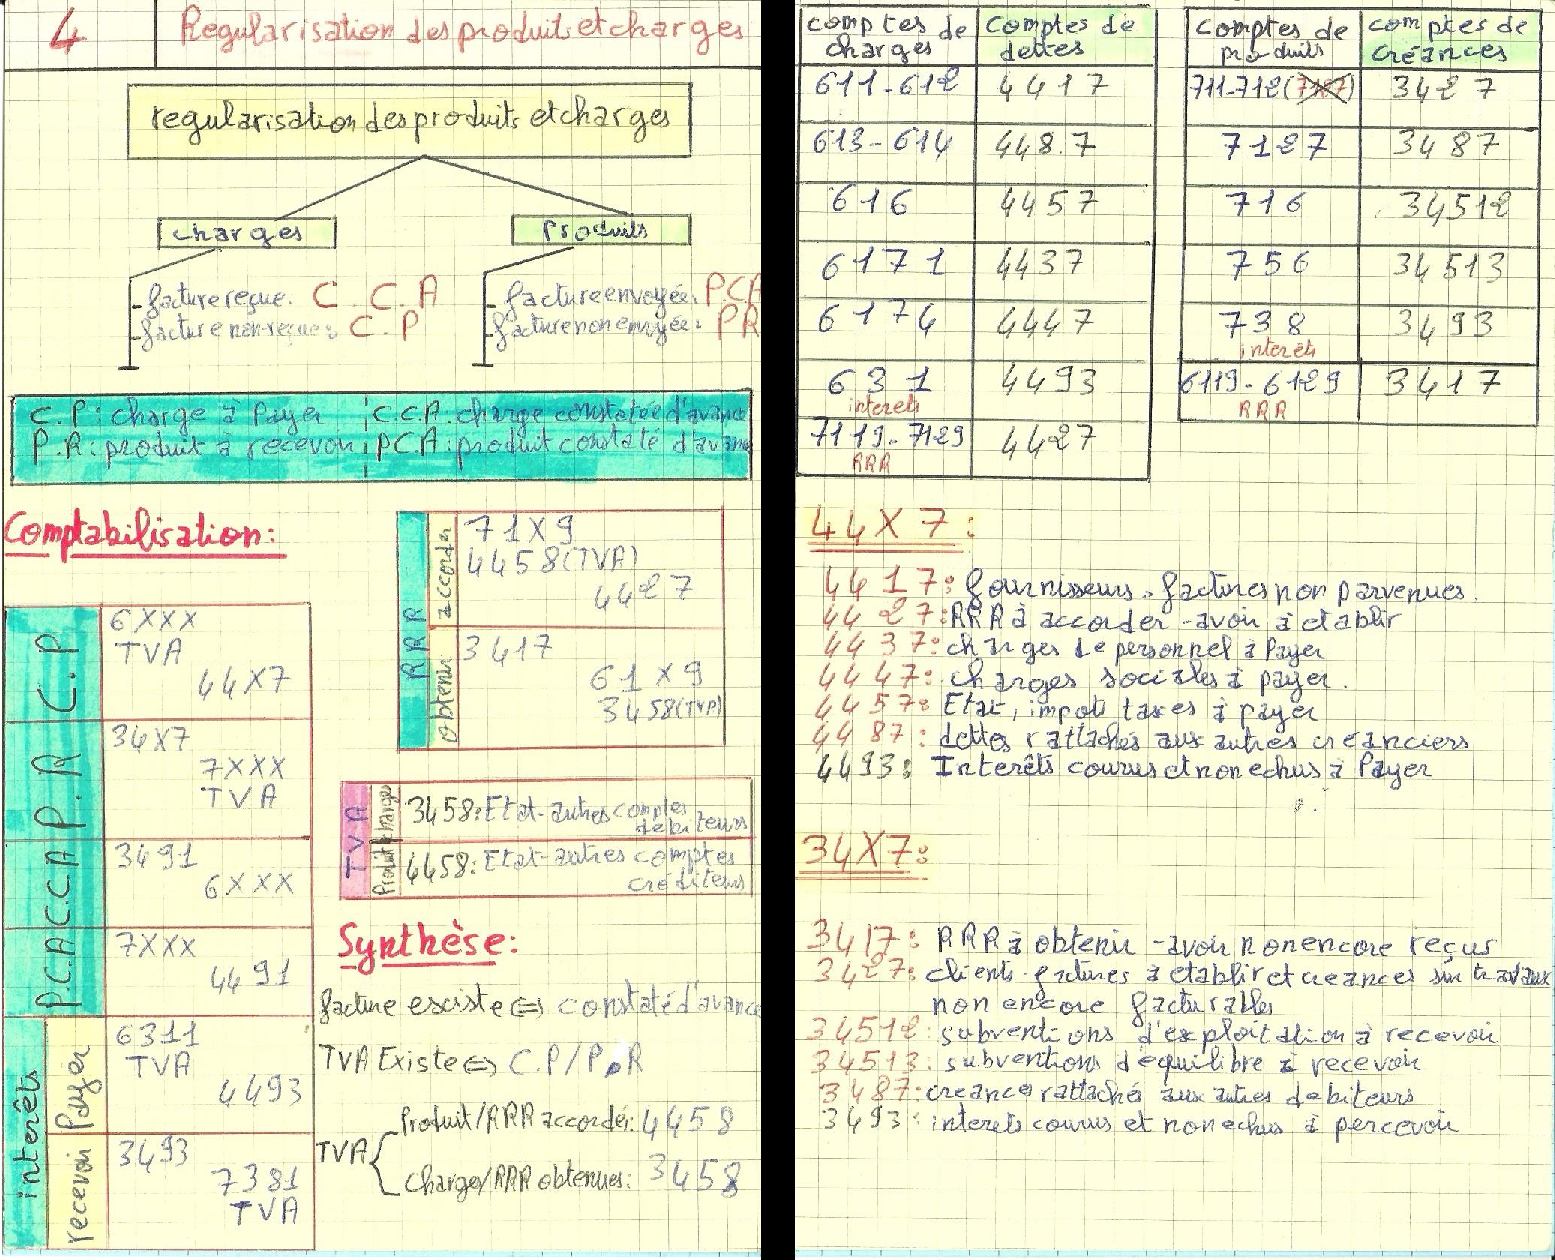 4 Regularisation des produit et charges
regularisation des produits et charges
charges
Produits
- facture reçue. C.C.A
- facture non reçue: C.P
- facture envoyée: PCA
- facture non envoyée: PR
C.P: charge à Payer
C.C.A: charge constatée d'avance
P.R: produit à recevoir
PCA: produit constaté d'avance
Comptabilisation:
C.P
6XXX
TVA
44X7
P.R
34X7
7XXX
TVA
C.C.A
3491
6XXX
P.C.A
7XXX
4491
interêts
Payer
6311
TVA
4493
recevoir
3493
7381
TVA
RRR
accorder
71X9
4458(TVA)
4427
Obtenir
3417
61X9
3458(TVA)
TVA
charges
3458: Etat-autres comptes
débiteurs
Produit
4458: Etat-autres comptes
créditeurs
Synthèse:
facture esciste <=> constaté d'avance
TVA Existe <=> C.P/P.R
TVA
Produit/RRR accordé: 4458
Charge/RRR obtenues: 3458
comptes de charges | comptes de dettes
611-612 | 4417
613-614 | 448.7
616 | 4457
6171 | 4437
6174 | 4447
631 interets | 4493
7119-7129 RRR | 4427
comptes de produits | comptes de créances
711-712(7127) | 3427
7127 | 3487
716 | 34512
756 | 34513
738 interêts | 3493
6119-6129 RRR | 3417
44X7:
4417: fournisseurs. factures non parvenues.
4427: RRR à accorder - avoir à etablir
4437: charges de personnel à Payer
4447: charges sociales à payer.
4457: Etat, impots taxes à payer
4487: dettes rattachés aux autres creanciers
4493: Interêts courus et non echus à Payer
34X7:
3417: RRR à obtenir - avoir non encore reçus
3427: clients-factures à etablir et creances sur travaux
non encore facturables
34512: subventions d'exploitation à recevoir
34513: subventions d'equilibre à recevoir
3487: creance rattaché aux autres debiteurs
3493: interets courus et non echus à percevoir